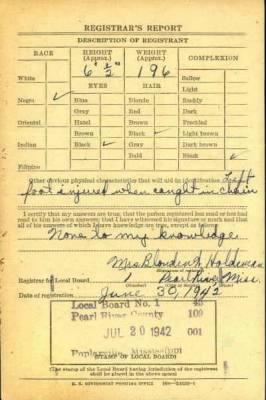 REGISTRAR'S REPORT
DESCRIPTION OF REGISTRANT
RACE HEIGHT (Approx.) WEIGHT (Approx.) COMPLEXION
6' ½" 196
White EYES HAIR Sallow
Light
Negro ✓ Blue Blonde Ruddy
Gray Red Dark
Oriental Hazel Brown Freckled
Brown Black ✓ Light brown
Indian Black ✓ Gray Dark brown
Bald Black ✓
Filipino
Other obvious physical characteristics that will aid in identification Left
foot injured when caught in chain
I certify that my answers are true; that the person registered has read or has had
read to him his own answers; that I have witnessed his signature or mark and that
all of his answers of which I have knowledge are true, except as follows:
None to my knowledge
Mrs Holdeman
Registrar for Local Board 1 Pearl River Miss.
Date of registration June 30, 1942
Local Board No. 1 95
Pearl River County 109
JUL 20 1942 001
Poplarville, Mississippi
STAMP OF LOCAL BOARD
(The stamp of the Local Board having jurisdiction of the registrant
shall be placed in the above space)
U. S. GOVERNMENT PRINTING OFFICE